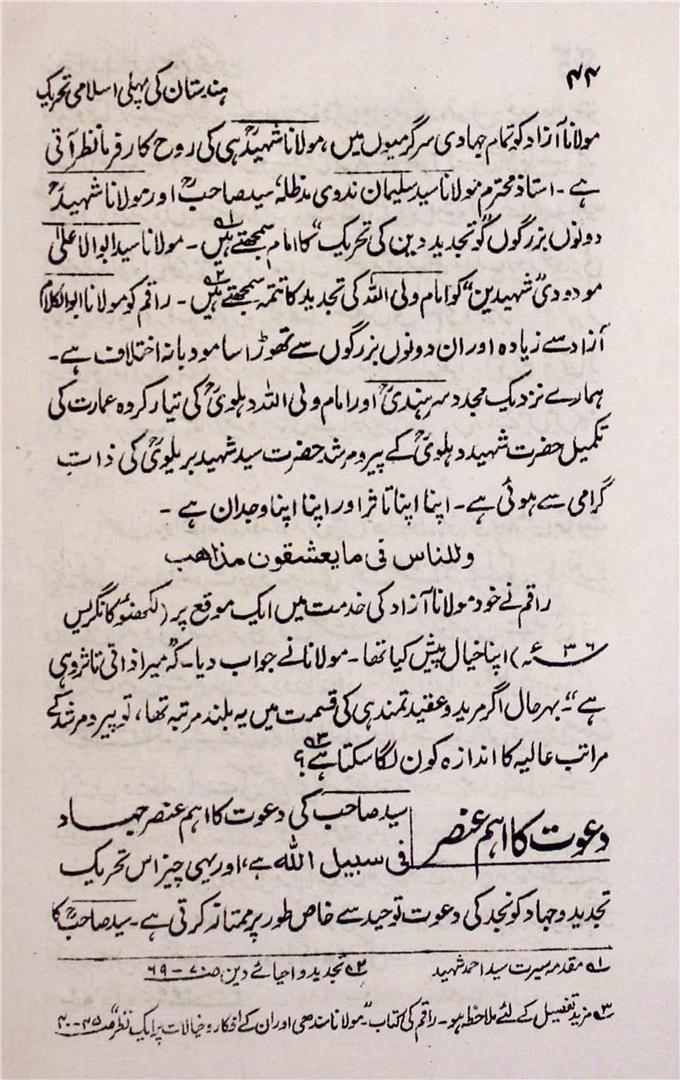 ۴۴
ہندستان کی پہلی اسلامی تحریک
مولانا آزاد کو تمام جہادی سرگرمیوں میں، مولانا شہیدؒ ہی کی روح کارفرما نظر آتی
ہے۔ استاذ محترم مولانا سید سلیمان ندوی مدظلہٗ سید صاحبؒ اور مولانا شہیدؒ
دونوں بزرگوں کو "تجدید دین کی تحریک" کا امام سمجھتے ہیں۔ مولانا سید ابوالاعلیٰ
مودودی "شہیدین" کو امام ولی اللہ کی تجدید کا تتمہ سمجھتے ہیں۔ راقم کو مولانا ابوالکلام
آزاد سے زیادہ اور ان دونوں بزرگوں سے تھوڑا سا مودبانہ اختلاف ہے۔
ہمارے نزدیک مجدد سرہندیؒ اور امام ولی اللہ دہلویؒ کی تیار کردہ عمارت کی
تکمیل حضرت شہید دہلویؒ کے پیر و مرشد حضرت سید شہید بریلویؒ کی ذات
گرامی سے ہوئی ہے۔ اپنا اپنا تاثر اور اپنا اپنا وجدان ہے۔
وللناس فی مایعشقون مذاھب
راقم نے خود مولانا آزاد کی خدمت میں ایک موقع پر (لکھنؤ کانگریس
۳۶ء) اپنا خیال پیش کیا تھا۔ مولانا نے جواب دیا۔ کہ "میرا ذاتی تاثر وہی
ہے"۔ بہرحال اگر مرید و عقیدتمند ہی کی قسمت میں یہ بلند مرتبہ تھا، تو پیر و مرشد کے
مراتب عالیہ کا اندازہ کون لگا سکتا ہے ۳؎؟
دعوت کا اہم عنصر
سید صاحب کی دعوت کا اہم عنصر جہاد
فی سبیل اللہ ہے، اور یہی چیز اس تحریک
تجدید و جہاد کو نجد کی دعوت توحید سے خاص طور پر ممتاز کرتی ہے۔ سید صاحبؒ کا
۱؎ مقدمہ سیرت سید احمد شہید ۲؎ تجدید و احیائے دین، ص ۷۰-۶۹
۳؎ مزید تفصیل کے لئے ملاحظہ ہو۔ راقم کی کتاب۔ "مولانا سندھی اور ان کے افکار و خیالات پر ایک نظر" ص ۳۵-۳۰